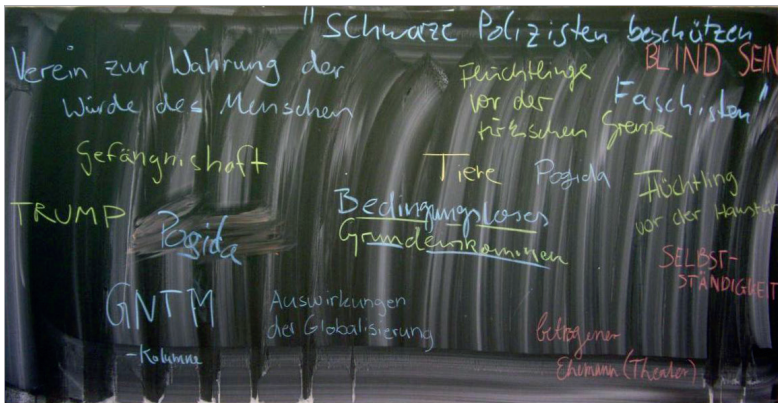 "Schwarze Polizisten beschützen
Faschisten"
BLIND SEIN
Verein zur Wahrung der
Würde des Menschen
Flüchtlinge
vor der
türkischen Grenze
Gefängnishaft
Tiere
Pogida
Flüchtling
vor der Haustür
TRUMP
Pogida
Bedingungsloses
Grundeinkommen
SELBST-
STÄNDIGKEIT
GNTM
-Kolumne
Auswirkungen
der Globalisierung
betrogener
Ehemann (Theater)